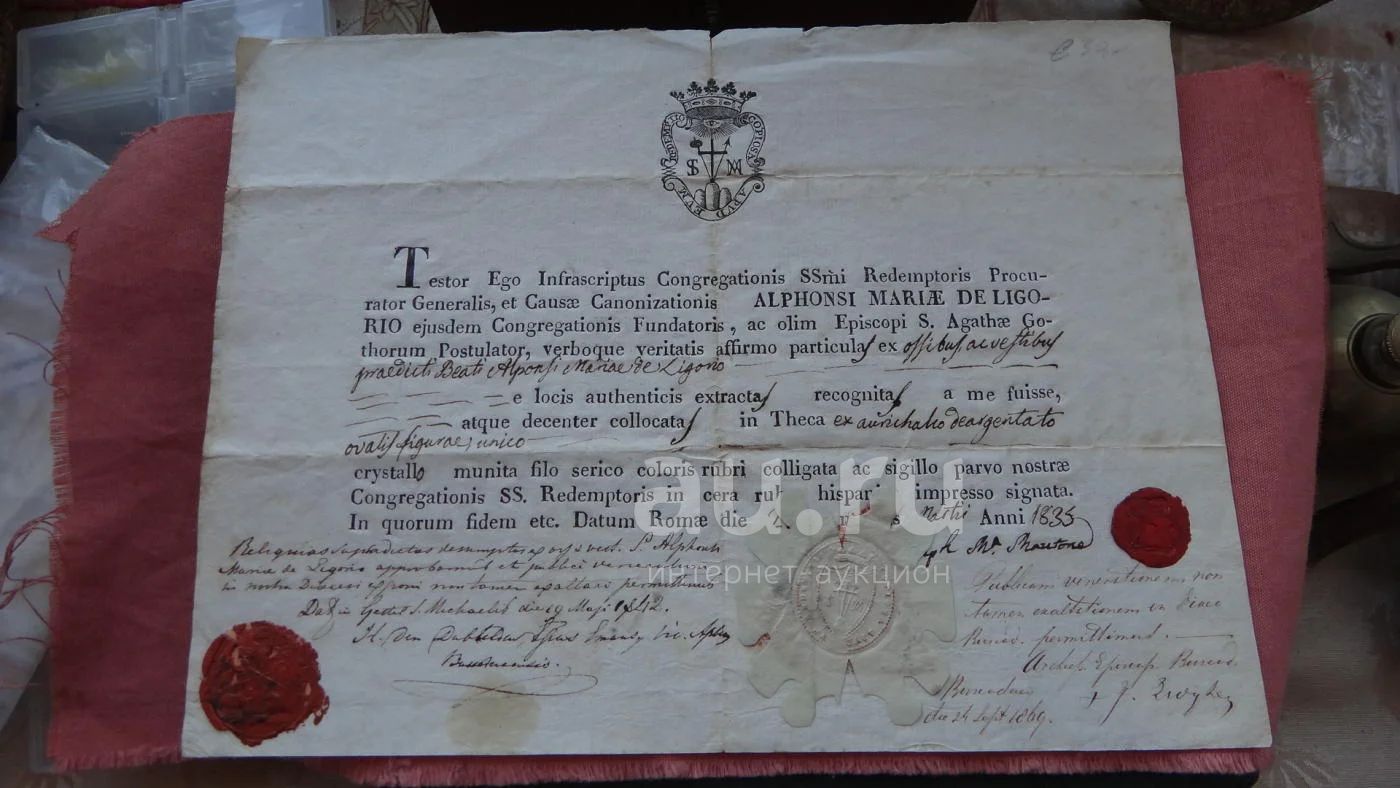 COPIOSA
APUD
EUM
S M
Testor Ego Infrascriptus Congregationis SSm̄i Redemptoris Procu-
rator Generalis, et Causæ Canonizationis ALPHONSI MARIÆ DE LIGO-
RIO ejusdem Congregationis Fundatoris, ac olim Episcopi S. Agathæ Go-
thorum Postulator, verboque veritatis affirmo particulas ex ossibus, ac vestibus
praedicti Beati Alponsi Mariae de Ligorio
e locis authenticis extractas recognitas a me fuisse,
atque decenter collocatas in Theca ex aurichalco deargentato
ovalis figurae, unico
crystallo munita filo serico coloris rubri colligata ac sigillo parvo nostræ
Congregationis SS. Redemptoris in cera rub hispan impresso signata.
In quorum fidem etc. Datum Romæ die Martii Anni 1835
Jph Ma Mautone
Reliquias supradictas desumptas ex oss. et vest. S. Alphonsi
Mariae de Ligorio approbamus et publicae venerationi
in nostra Dioecesi exponi non tamen exaltari permittimus
Dat. in Gestel S. Michaelis die 19 Maji 1842.
H. Den Dubbelden Vic. Aplic
Buscoducensis.
Publicam venerationem, non
tamen exaltationem in Dioec
Buscod. permittimus.
Archiep. Episcop. Buscod.
Buscoduci
die 24 Sept 1869.
+ J. Zwijsen
au.ru
интернет аукцион